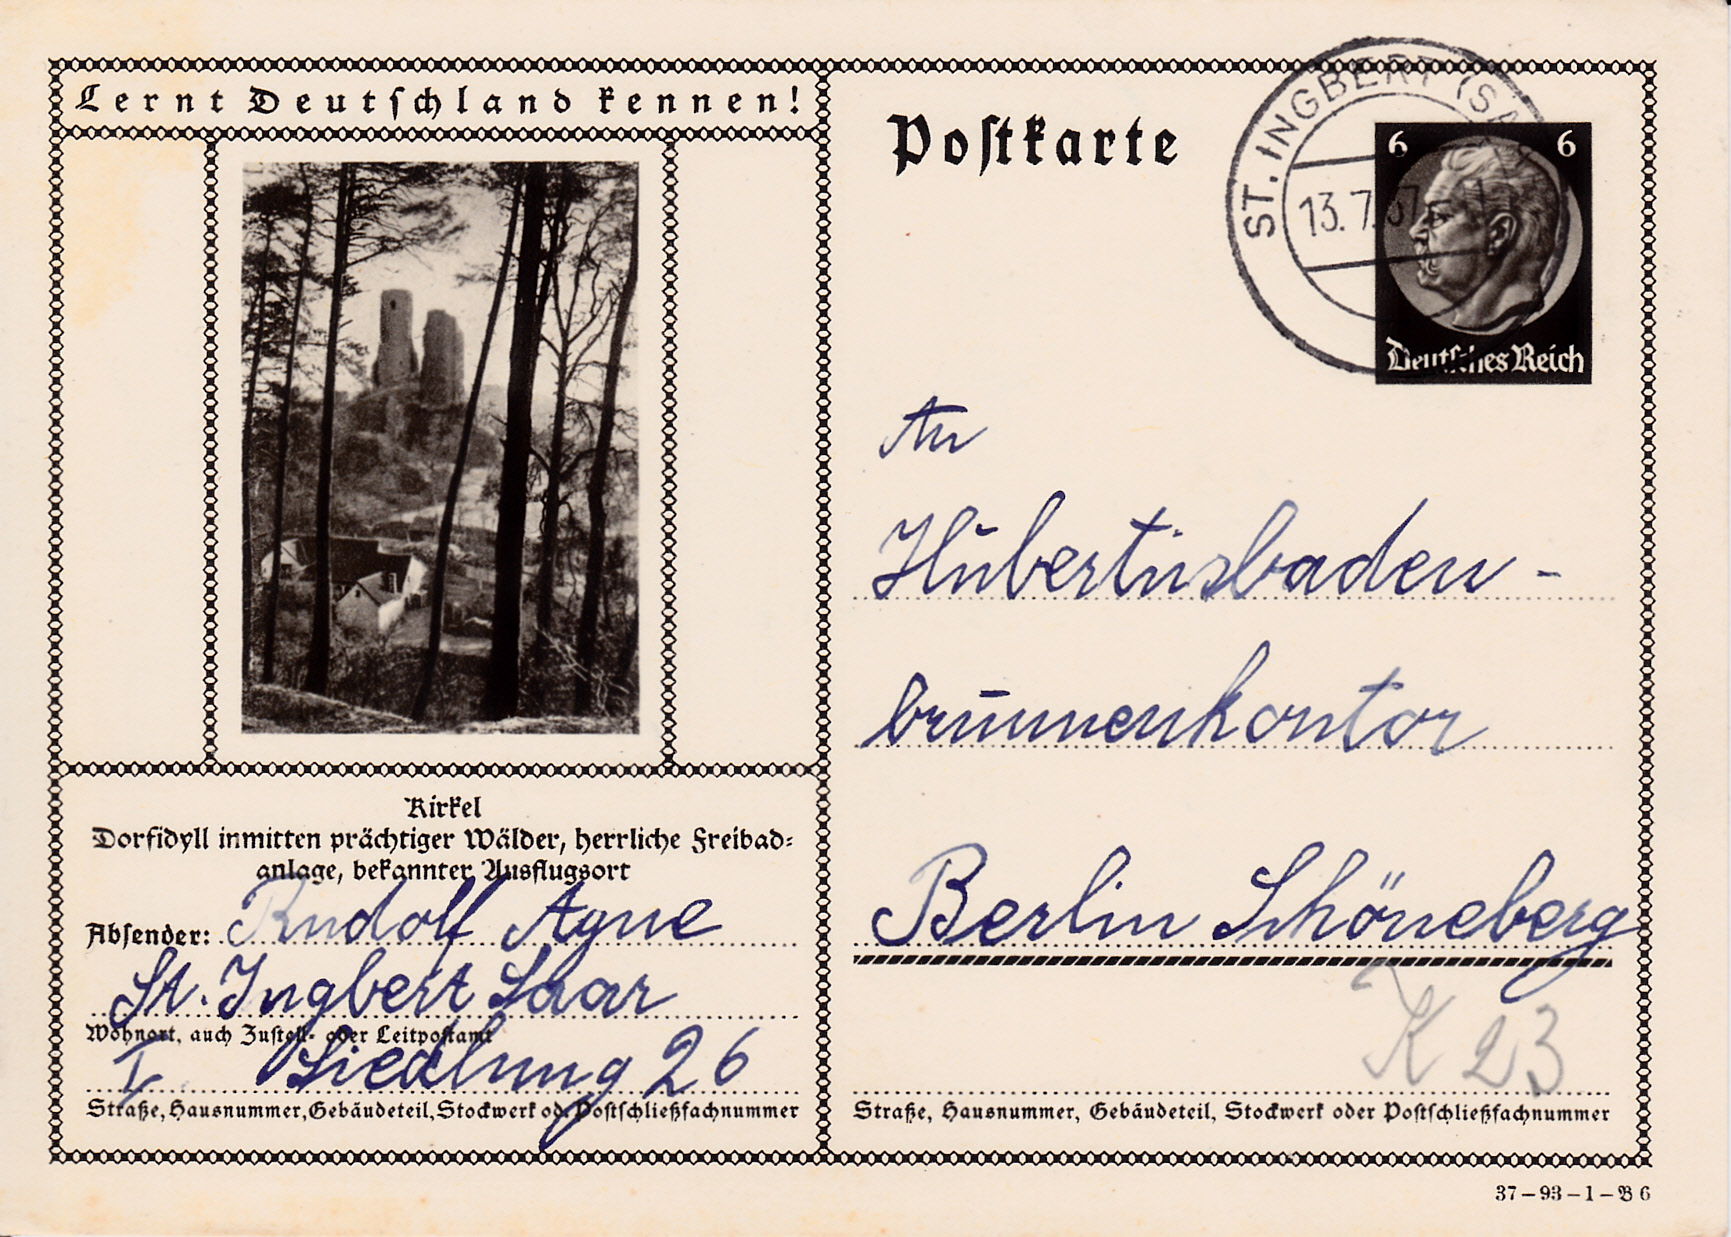 Lernt Deutschland kennen!
Kirkel
Dorfidyll inmitten prächtiger Wälder, herrliche Freibad-
anlage, bekannter Ausflugsort
Absender: Rudolf Agne
St. Ingbert Saar
Wohnort, auch Zustell- oder Leitpostamt
I. Siedlung 26
Straße, Hausnummer, Gebäudeteil, Stockwerk od. Postschließfachnummer
Postkarte
ST. INGBERT (SA
13.7.37
6 6
Deutsches Reich
An
Hubertusbaden-
brunnenkontor
Berlin Schöneberg
K 23
Straße, Hausnummer, Gebäudeteil, Stockwerk oder Postschließfachnummer
37-93-1-B 6